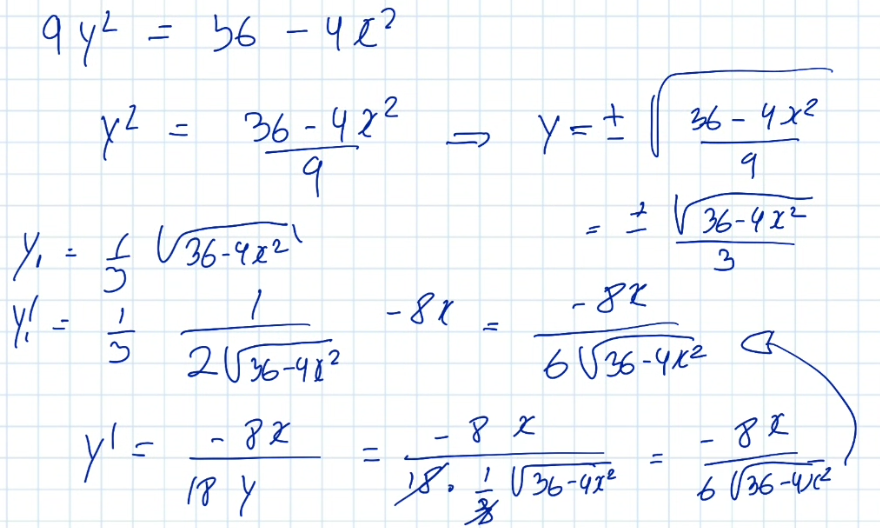 9y² = 36 - 4x²
y² = (36 - 4x²)/9 ⇒ y = ± √((36 - 4x²)/9)
= ± √(36 - 4x²)/3
y₁ = 1/3 √(36 - 4x²)
y₁' = 1/3 1/(2√(36 - 4x²)) - 8x = -8x/(6√(36 - 4x²))
y' = -8x/(18 y) = -8x/(18 · 1/3 √(36 - 4x²)) = -8x/(6√(36 - 4x²))